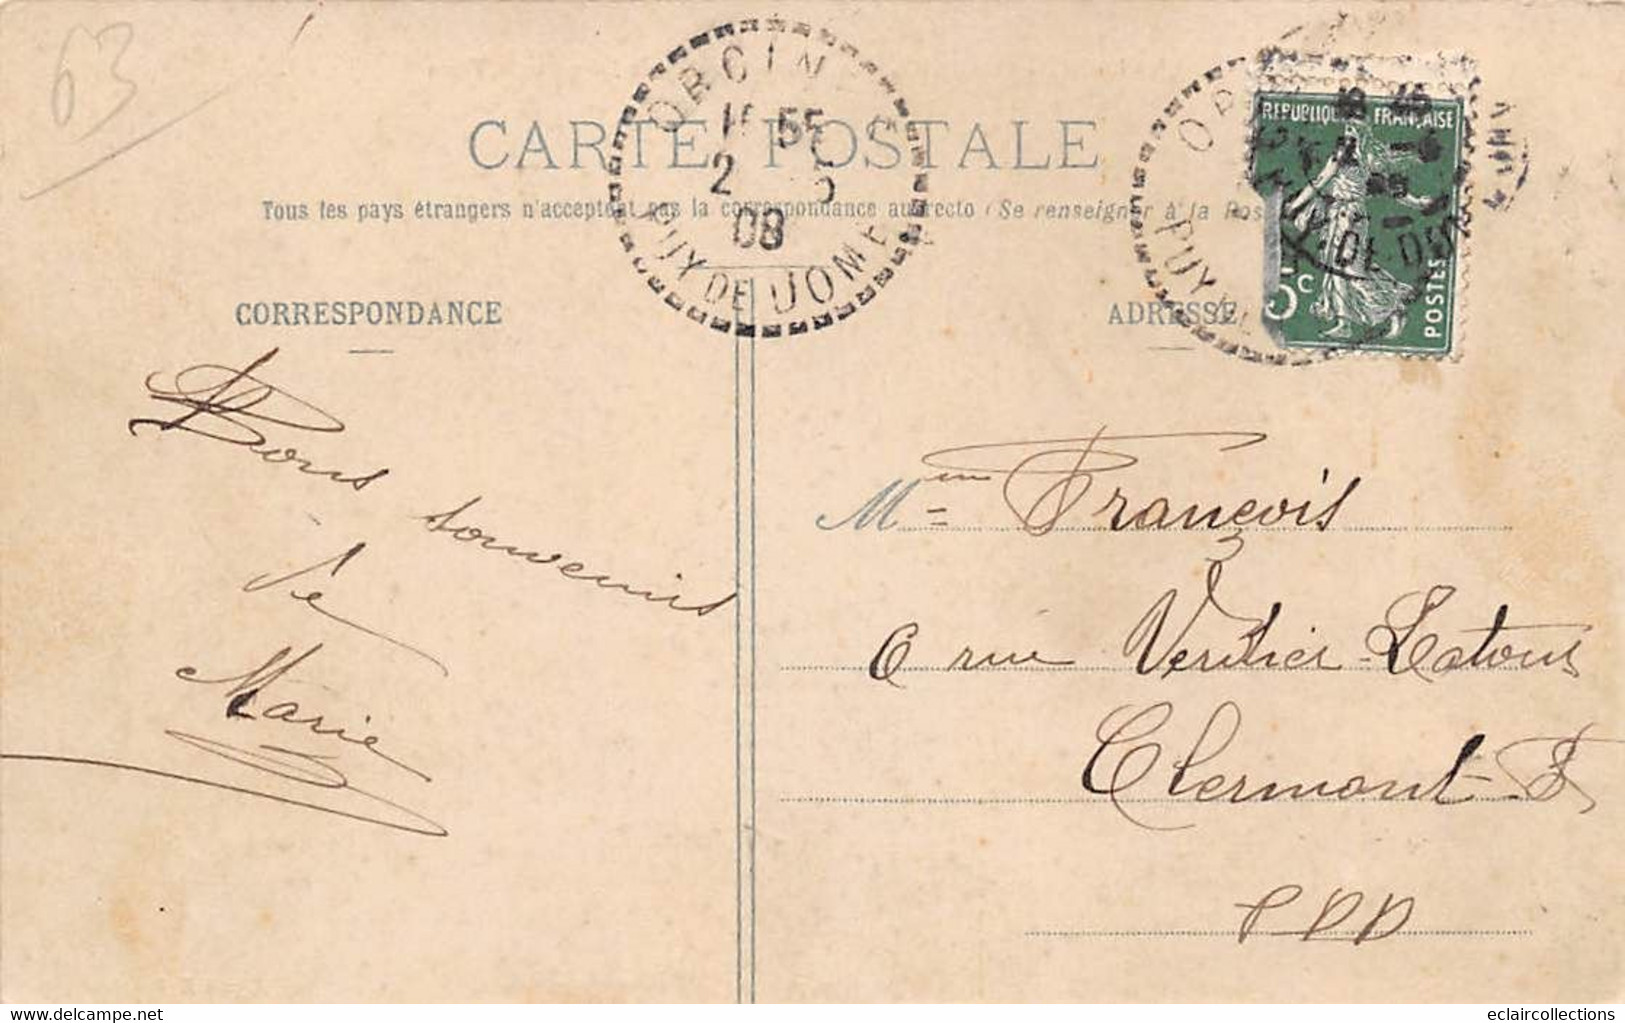 63
CARTE POSTALE
ORCIN
55
2
08
PUY DE DOME
Tous les pays étrangers n'acceptent pas la correspondance au recto (Se renseigner à la Pos
REPUBLIQUE FRANÇAISE
5c
POSTES
PUY
CORRESPONDANCE
ADRESSE
Bons souvenirs
de
Marie
Mme François
6 rue Verdier-Latour
Clermont-F
PDD
www.delcampe.net
eclaircollections